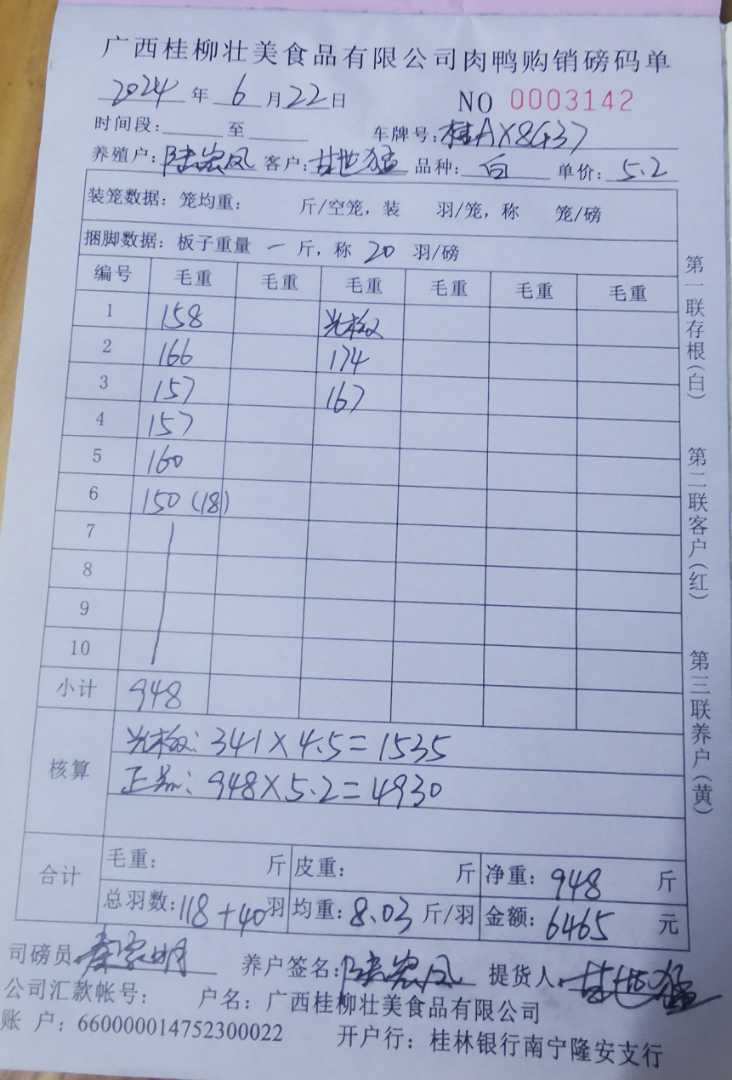 广西桂柳壮美食品有限公司肉鸭购销磅码单
2024 年 6 月 22 日 NO 0003142
时间段: 至 车牌号: 桂AX8G37
养殖户: 客户: 甘地猛 品种: 白 单价: 5.2
装笼数据: 笼均重: 斤/空笼, 装 羽/笼, 称 笼/磅
捆脚数据: 板子重量 一 斤, 称 20 羽/磅
编号 毛重 毛重 毛重 毛重 毛重 毛重
1 158
2 166 174
3 157 167
4 157
5 160
6 150 (18)
7
8
9
10
小计 948
核算
341×4.5=1535
948×5.2=4930
合计
毛重: 斤 皮重: 斤 净重: 948 斤
总羽数: 118+40 羽 均重: 8.03 斤/羽 金额: 6465 元
司磅员 养户签名: 提货人: 甘地猛
公司汇款帐号: 户名: 广西桂柳壮美食品有限公司
账 户: 660000014752300022 开户行: 桂林银行南宁隆安支行
第一联存根(白) 第二联客户(红) 第三联养户(黄)